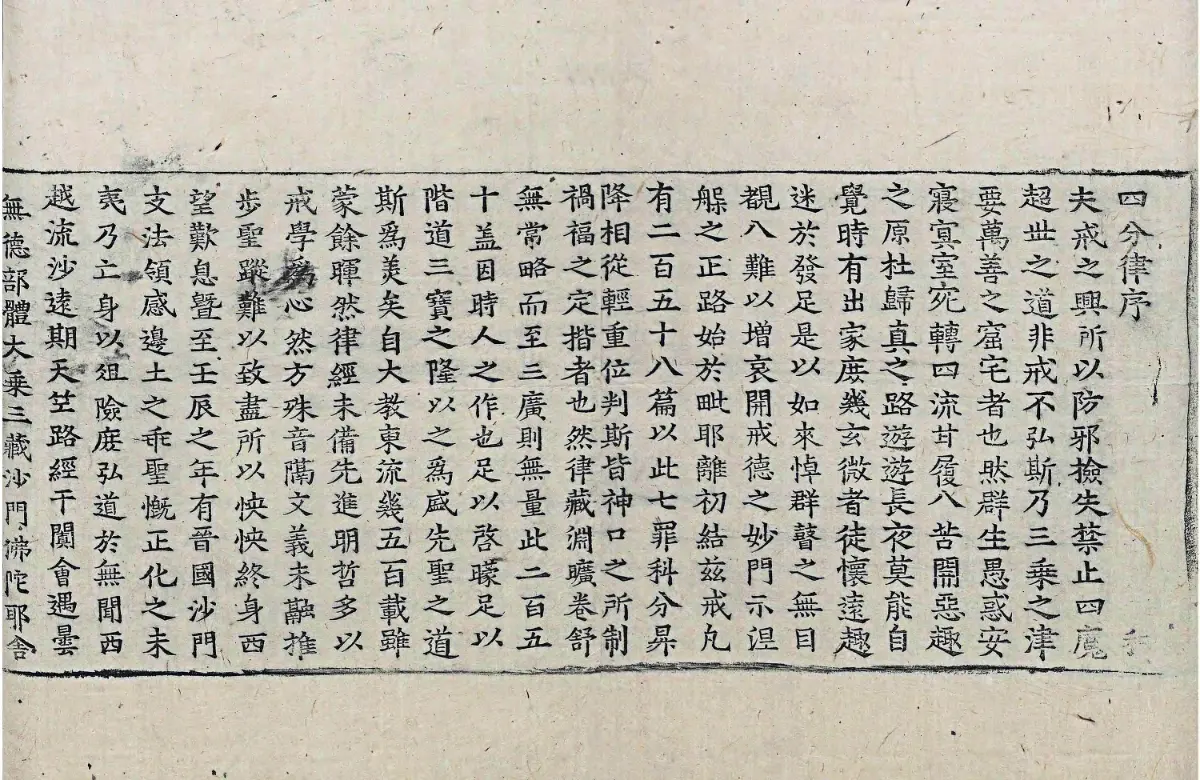 四分律序
夫戒之興所以防邪撿失禁止四魔
超世之道非戒不弘斯乃三乗之津
要萬善之窟宅者也然群生愚惑安
寢冥室宛轉四流甘履八苦開惡趣
之原杜歸真之路遊遊長夜莫能自
覺時有出家庻幾玄微者徒懷遠趣
迷於發足是以如來悼群瞽之無目
覩八難以増哀開戒德之妙門示涅
槃之正路始於毗耶離初結兹戒凡
有二百五十八篇以此七罪科分昇
降相從輕重位判斯皆神口之所制
禍福之定揩者也然律藏淵曠卷舒
無常略而至三廣則無量此二百五
十盖因時人之作也足以啓曚足以
階道三寶之隆以之爲盛先聖之道
斯爲美矣自大教東流幾五百載雖
蒙餘暉然律經未備先進明哲多以
戒學爲心然方殊音隔文義未融推
步聖蹤難以致盡所以怏怏終身西
望歎息曁至壬辰之年有晉國沙門
支法領感邊土之乖聖慨正化之未
夷乃亡身以俎險庻弘道於無聞西
越流沙遠期天竺路經于闐會遇曇
無德部體大乗三藏沙門佛陀耶舎